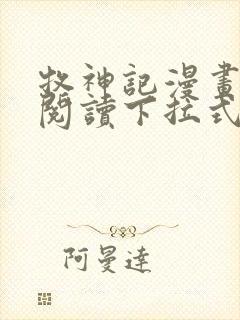 牧神記漫畫
閱讀下拉式
阿曼達